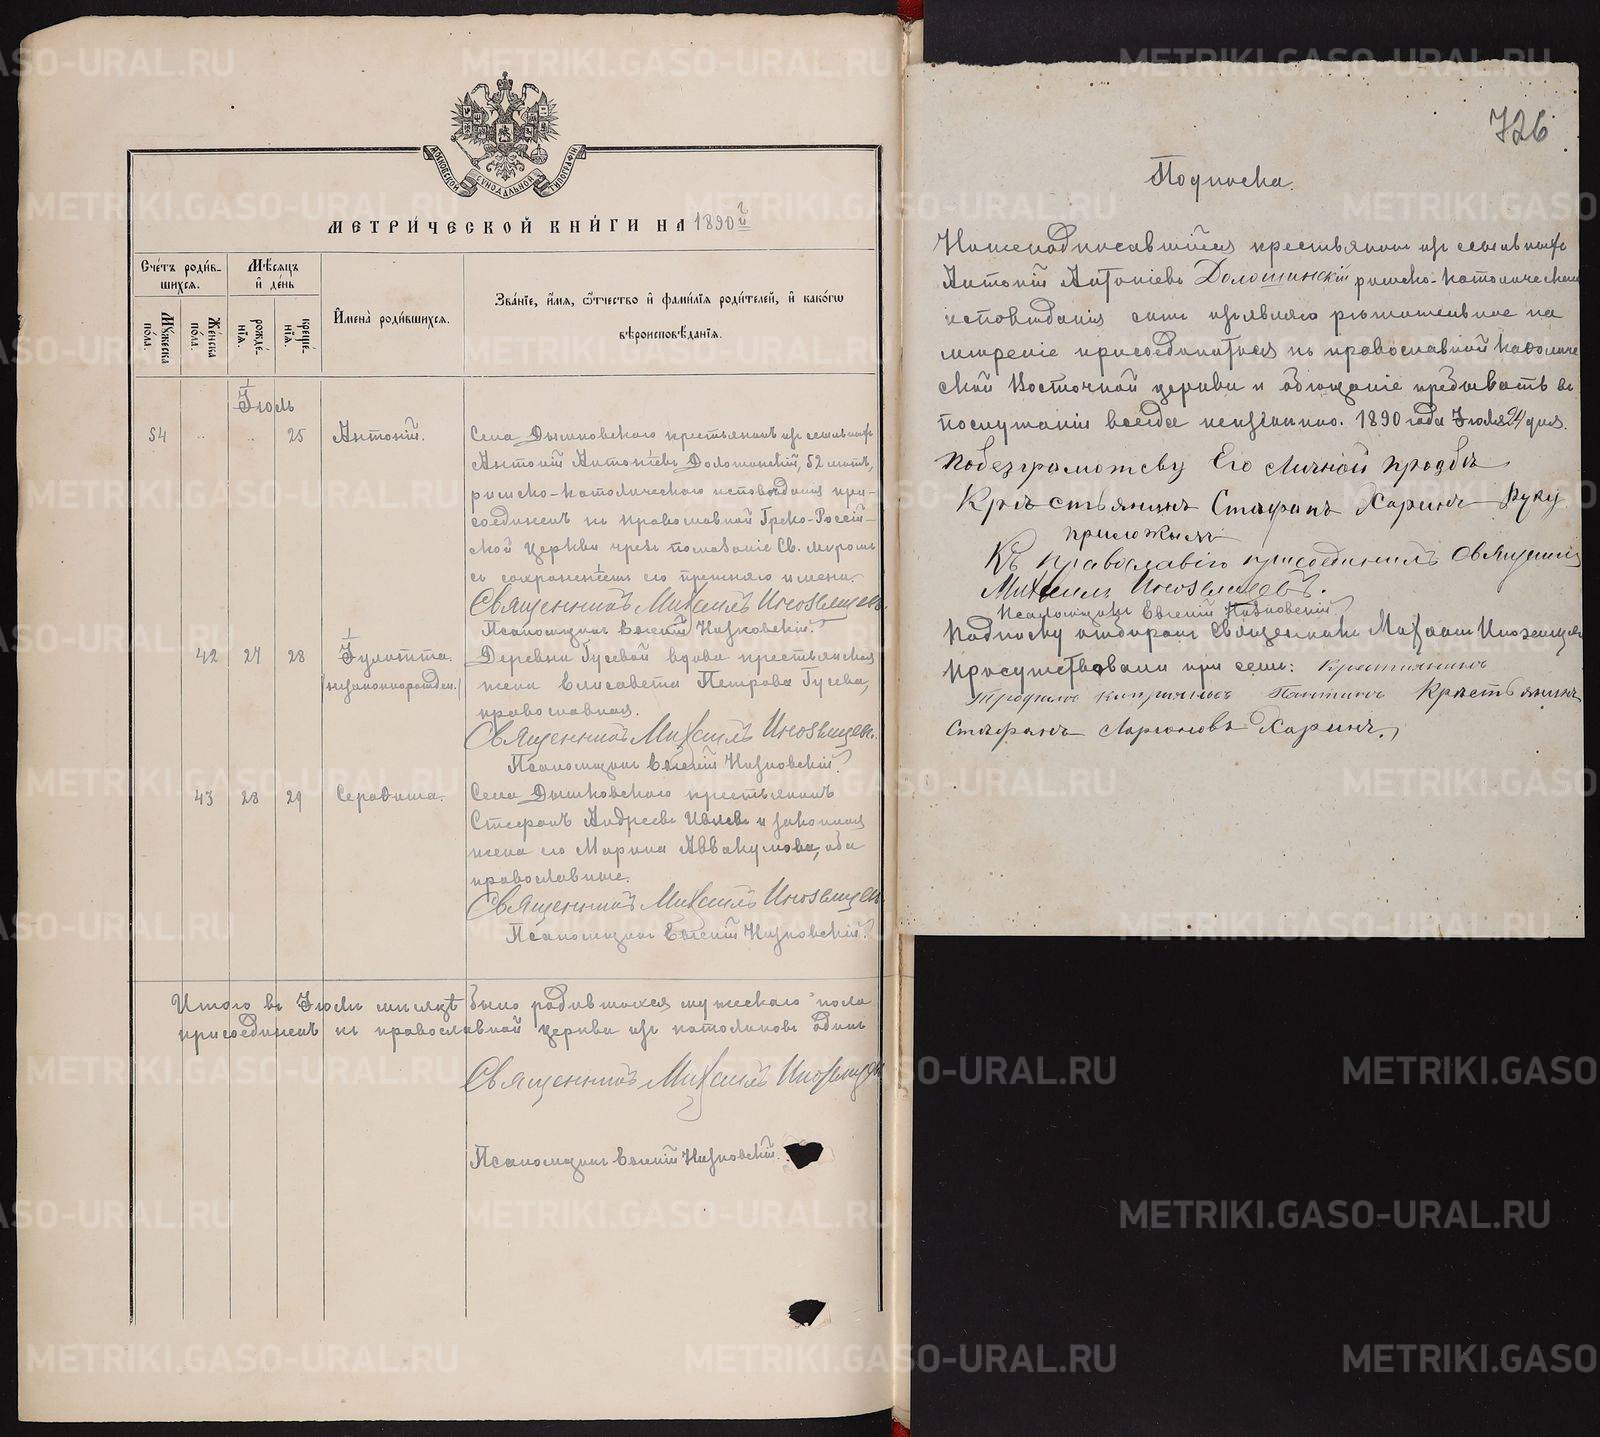 МОСКОВСКОЙ СѴНОДАЛЬНОЙ ТИПОГРАФІИ
МЕТРИ́ЧЕСКОЙ КНИ́ГИ НА 1890 г.
Сче́тъ роди́в-
шихся.
Мѣ́сяцъ
и҆ де́нь
И҆мена̀ роди́вшихся.
Зва́нїе, и҆́мя, ѻ҆́тчество и҆ фами́лїя роди́телей, и҆ како́гѡ
вѣроисповѣ́данїѧ.
Мꙋ́жеска
по́ла.
Же́нска
по́ла.
рожде́-
нїя.
креще́-
нїя.
Іюль
54 .. .. 25 Антоній.
Села Дымковскаго крестьянинъ изъ ссыльныхъ
Антоній Антоніевъ Долошинскій, 52 лѣтъ,
римско-католическаго исповѣданія при-
соединенъ къ православной Греко-Россій-
ской церкви чрезъ помазаніе Св. муромъ
съ сохраненіемъ его прежняго имени.
Священникъ Михаилъ Иноземцевъ.
Псаломщикъ Евгеній Низковскій.
42 27 28 Іулитта.
(незаконнорожден.)
Деревни Гусевой вдова крестьянская
жена Елисавета Петрова Гусева,
православная.
Священникъ Михаилъ Иноземцевъ.
Псаломщикъ Евгеній Низковскій.
43 28 29 Серафима.
Села Дымковскаго крестьянинъ
Стефанъ Андреевъ Ивлевъ и законная
жена его Марина Аввакумова, оба
православные.
Священникъ Михаилъ Иноземцевъ
Псаломщикъ Евгеній Низковскій.
Итого въ Іюлѣ мѣсяцѣ было родившихся мужескаго пола
присоединенъ къ православной церкви изъ католиковъ одинъ
Священникъ Михаилъ Иноземцевъ
Псаломщикъ Евгеній Низковскій.
726
Подписка.
Нижеподписавшійся крестьянинъ изъ ссыльныхъ
Антоній Антоніевъ Долошинскій римско-католическаго
исповѣданія симъ изъявляю рѣшительное на
мѣреніе присоединиться къ православной каѳоличе
ской Восточной церкви и обѣщаніе пребывать въ
послушаніи всегда неизмѣнно. 1890 года Іюля 24 дня.
по безграмотсву Его личной прозбѣ
Крѣстьянинъ Стефанъ Харинъ Руку
приложылъ
Къ православію присоединилъ Священникъ
Михаилъ Иноземцевъ.
Псаломщикъ Евгеній Низковскій
Подписку отбиралъ Священникъ Михаилъ Иноземцевъ
Присутствовали при семъ: Крестьянинъ
Крѣстьянинъ
Стефанъ Ларионовъ Харинъ.
METRIKI.GASO-URAL.RU